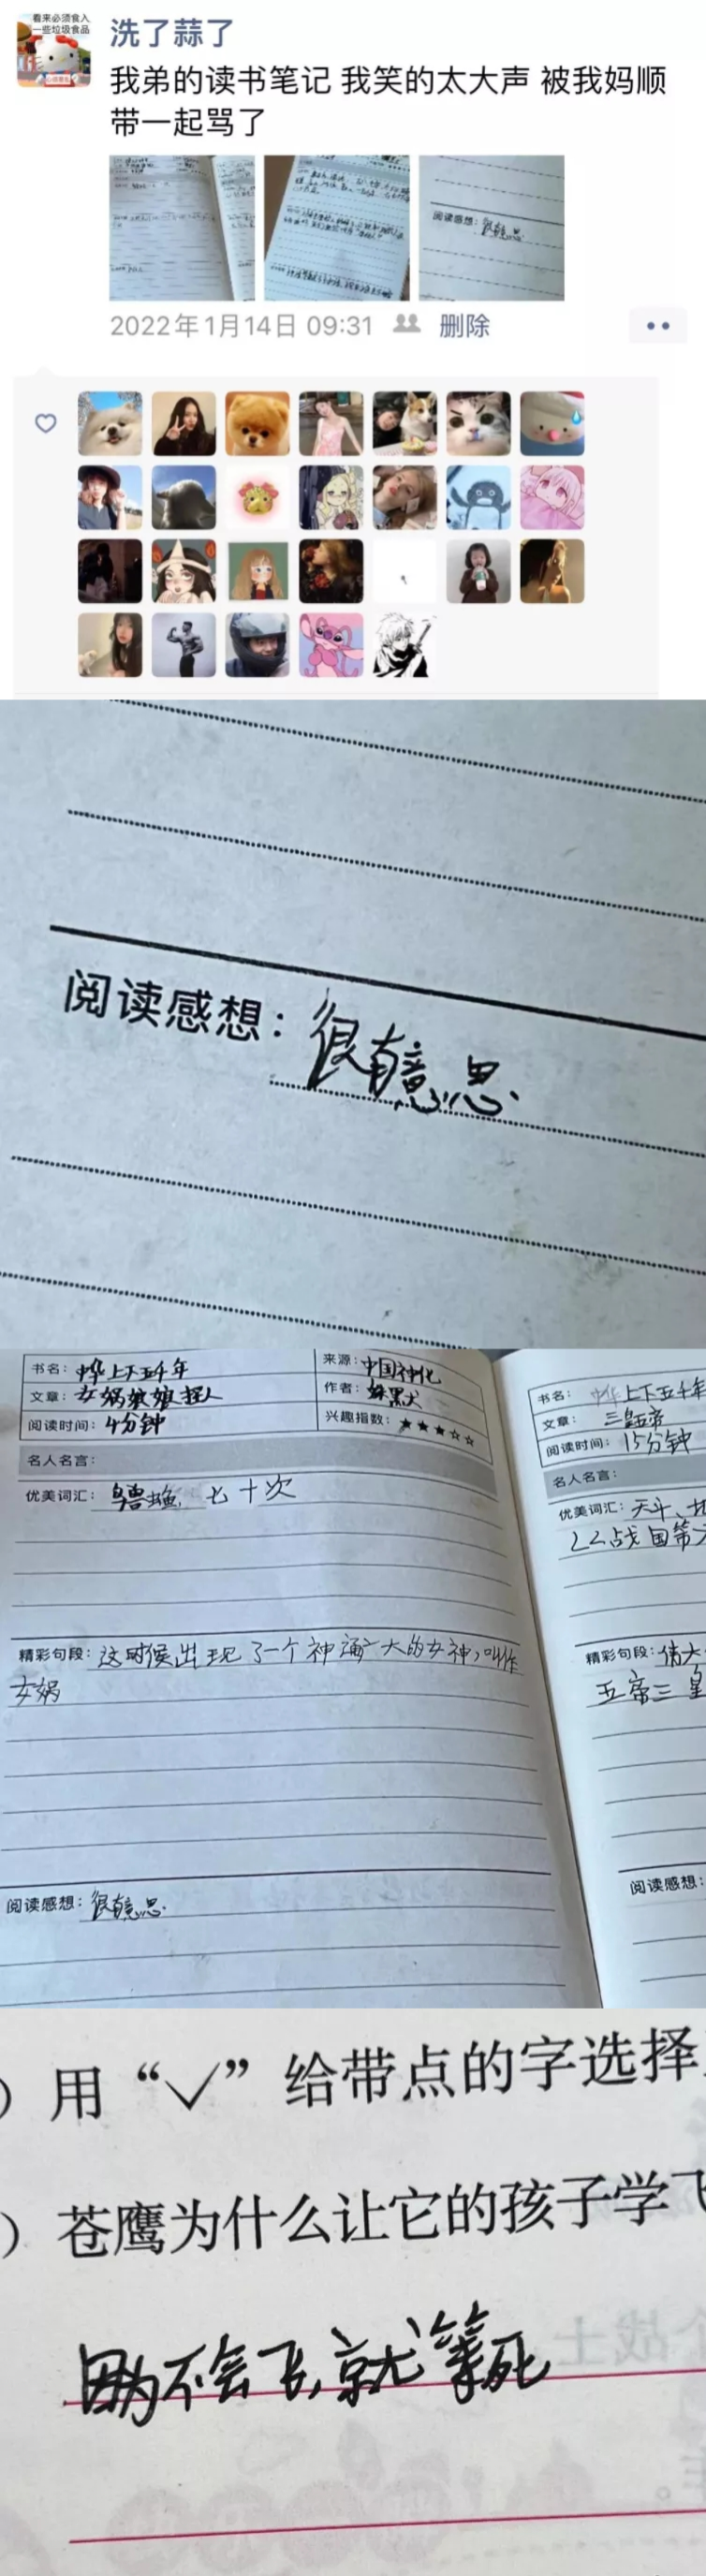 看来必须食入
一些垃圾食品
洗了蒜了
我弟的读书笔记 我笑的太大声 被我妈顺
带一起骂了
阅读感想：很有意思
2022年1月14日 09:31 删除
阅读感想：很有意思.
书名：中华上下五千年
来源：中国神化
文章：女娲娘娘捏人
作者：
阅读时间：4分钟
兴趣指数：★★★☆☆
名人名言：
优美词汇： 七十次
精彩句段：这时候出现了一个神通广大的女神，叫作
女娲
阅读感想：很有意思.
书名：中华上下五千年
文章：三皇五帝
阅读时间：15分钟
名人名言：
优美词汇：天斗、
战国第
精彩句段：伟大
五帝三皇
阅读感想：
）用“✓”给带点的字选择
）苍鹰为什么让它的孩子学飞
因为不会飞，就等死
个战士